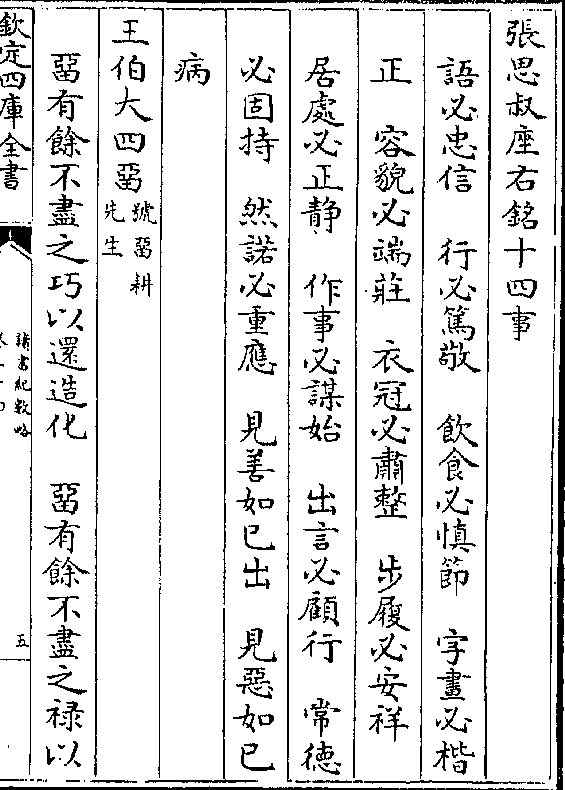 張思叔座右銘十四事
語必忠信　行必篤敬　飲食必慎節　字畫必楷
正　容貌必端莊　衣冠必肅整　步履必安祥
居處必正静　作事必謀始　出言必顧行　常德
必固持　然諾必重應　見善如已出　見惡如已
病
王伯大四畱
號畱耕
先生
畱有餘不盡之巧以還造化　畱有餘不盡之禄以
欽定四庫全書
讀書紀數略
五